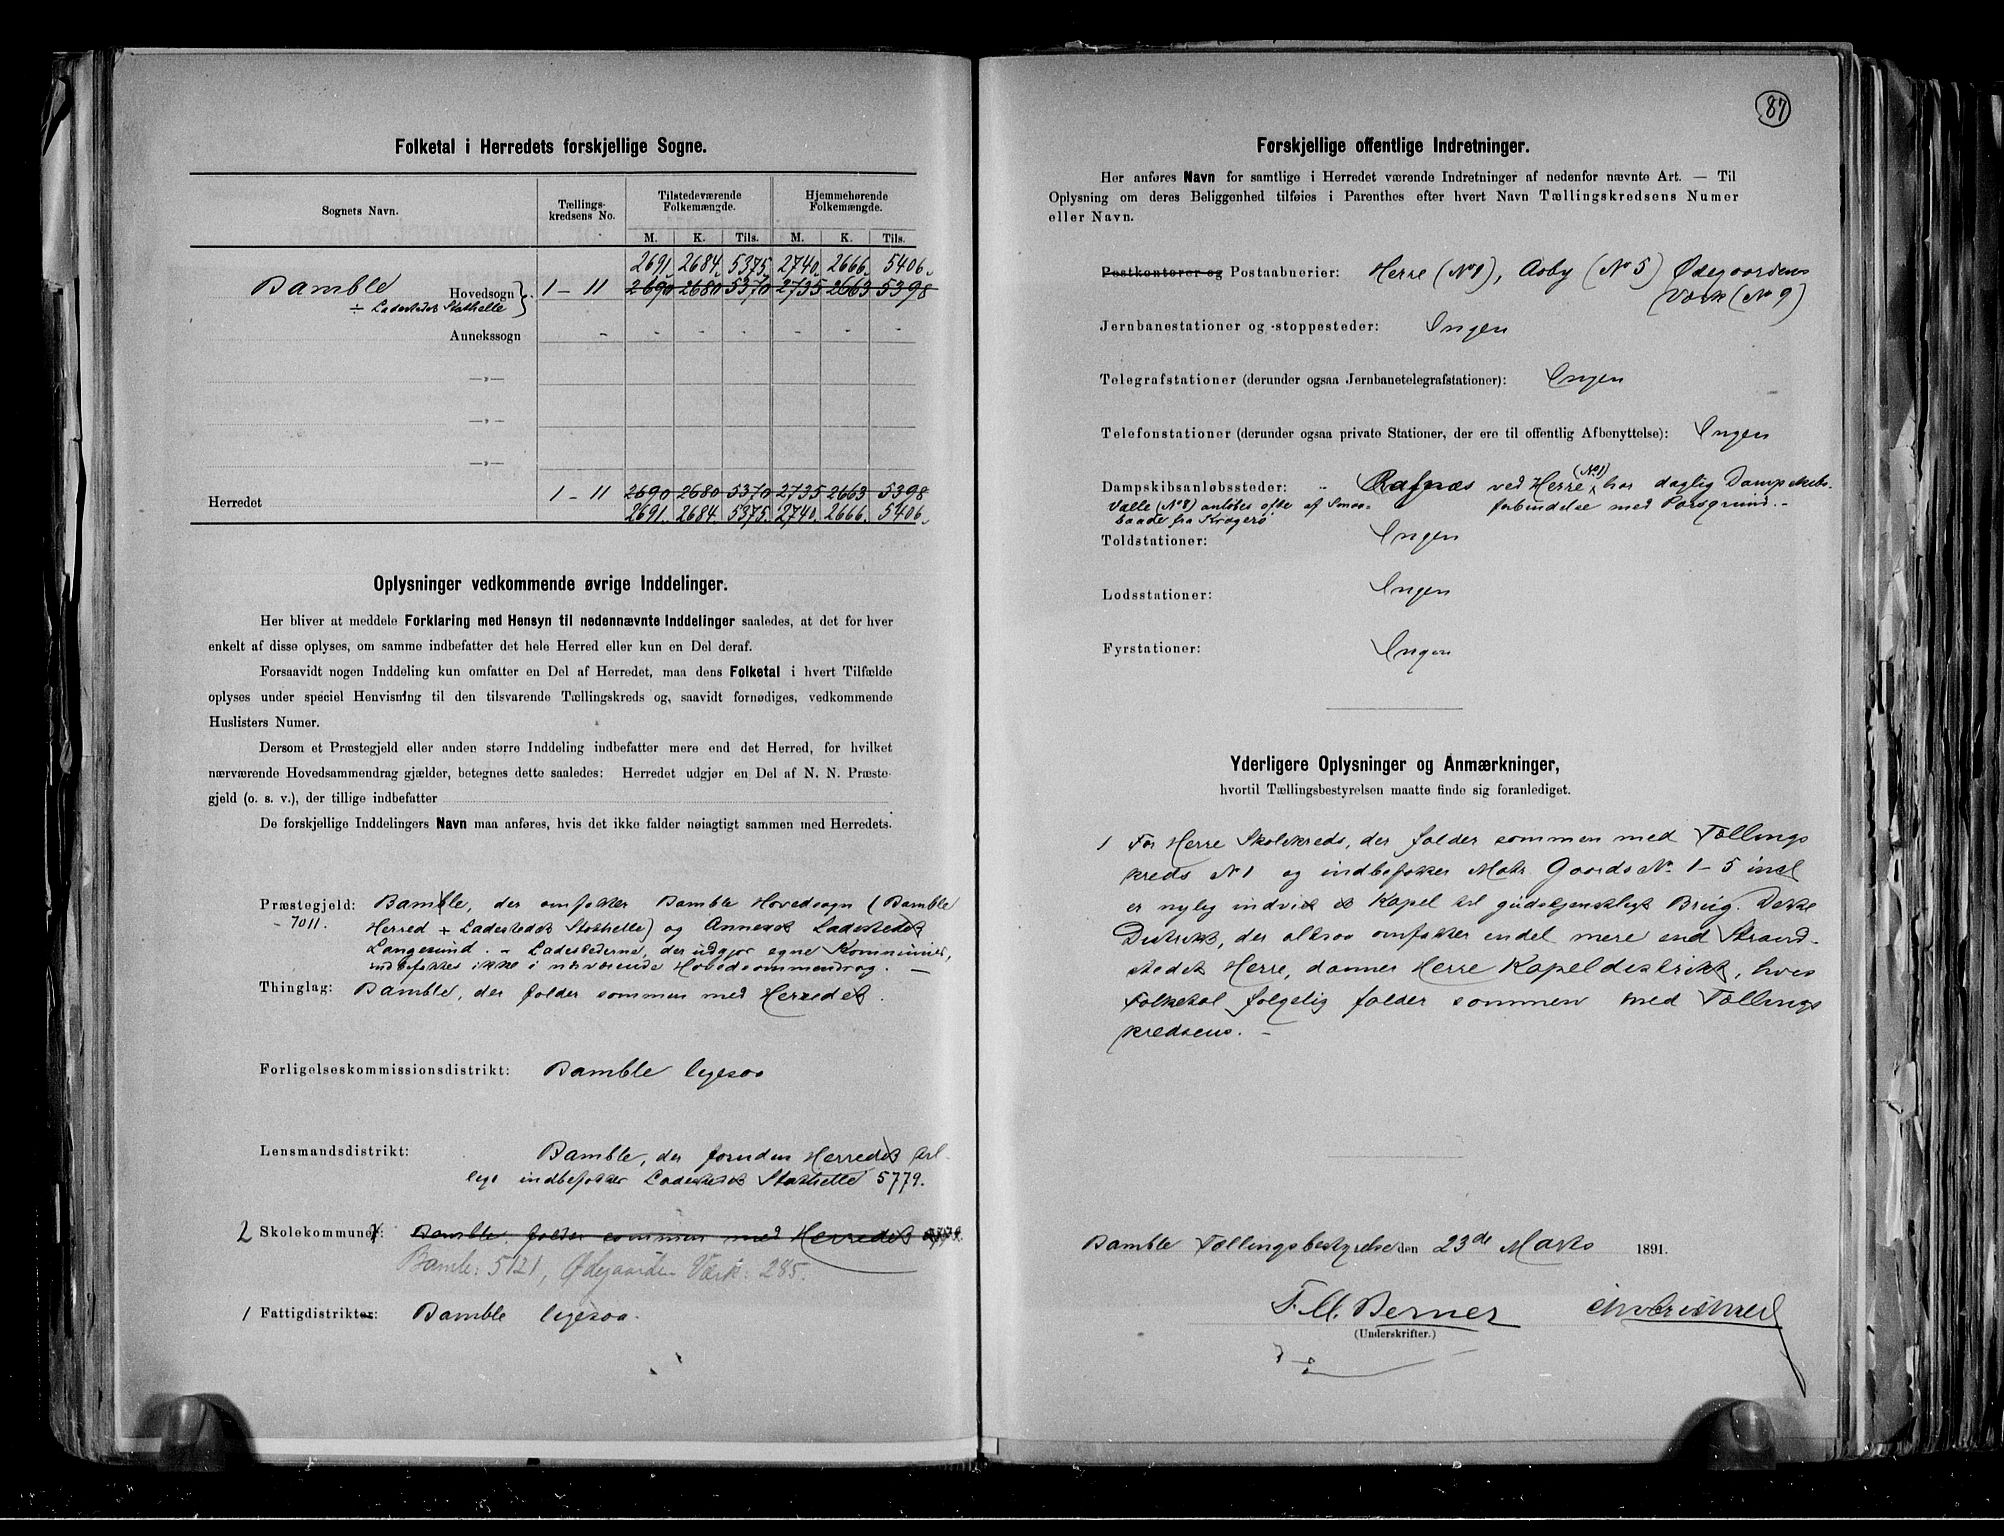 Folketal i Herredets forskjellige Sogne.
Sognets Navn. Tællings-kredsens No. Tilstedeværende Folkemængde. Hjemmehørende Folkemængde.
M. K. Tils. M. K. Tils.
2691. 2684. 5375. 2740. 2666. 5406.
Bamble Hovedsogn 1 – 11 2690 2680 5370 2735 2663 5398
÷ Ladestedet Stathelle
Annekssogn - - - - - - -
—»—
—»—
—»—
Herredet 1 – 11 2690 2680 5370 2735 2663 5398
2691. 2684. 5375. 2740. 2666. 5406.
Oplysninger vedkommende øvrige Inddelinger.
Her bliver at meddele Forklaring med Hensyn til nedennævnte Inddelinger saaledes, at det for hver
enkelt af disse oplyses, om samme indbefatter det hele Herred eller kun en Del deraf.
Forsaavidt nogen Inddeling kun omfatter en Del af Herredet, maa dens Folketal i hvert Tilfælde
oplyses under speciel Henvisning til den tilsvarende Tællingskreds og, saavidt fornødiges, vedkommende
Huslisters Numer.
Dersom et Præstegjeld eller anden større Inddeling indbefatter mere end det Herred, for hvilket
nærværende Hovedsammendrag gjælder, betegnes dette saaledes: Herredet udgjør en Del af N. N. Præste-
gjeld (o. s. v.), der tillige indbefatter
De forskjellige Inddelingers Navn maa anføres, hvis det ikke falder nøiagtigt sammen med Herredets.
Præstegjeld: Bamble, der omfatter Bamble Hovedsogn (Bamble
- 7011. Herred + Ladestedet Stathelle) og Annexet Ladestedet
Langesund. – Ladestederne, der udgjør egne Kommuner,
indbefattes ikke i nærværende Hovedsammendrag. —
Thinglag: Bamble, der falder sammen med Herredet.
Forligelseskommissionsdistrikt: Bamble ligesaa
Lensmandsdistrikt: Bamble, der foruden Herredet til-
lige indbefatter Ladestedet Stathelle 5779.
2 Skolekommuner: Bamble, falder sammen med Herredet
Bamle: 5121, Ødegaarden Værk: 285.
1 Fattigdistrikter: Bamble ligesaa.
87
Forskjellige offentlige Indretninger.
Her anføres Navn for samtlige i Herredet værende Indretninger af nedenfor nævnte Art. — Til
Oplysning om deres Beliggenhed tilføies i Parenthes efter hvert Navn Tællingskredsens Numer
eller Navn.
Postkontorer og Postaabnerier: Herre (No 1), Aaby (No 5) Ødegaardens
Værk (No 9)
Jernbanestationer og -stoppesteder: Ingen
Telegrafstationer (derunder ogsaa Jernbanetelegrafstationer): Ingen
Telefonstationer (derunder ogsaa private Stationer, der ere til offentlig Afbenyttelse): Ingen
Dampskibsanløbssteder: Rafnæs ved Herre (No 1) har daglig Dampskibs-
Valle (No 8) anløbes ofte af Smaa= forbindelse med Porsgrund. -
baade fra Kragerø
Toldstationer: Ingen
Lodsstationer: Ingen
Fyrstationer: Ingen
Yderligere Oplysninger og Anmærkninger,
hvortil Tællingsbestyrelsen maatte finde sig foranlediget.
1 For Herre Skolekreds, der falder sammen med Tællings
kreds N 1 og indbefatter Matr. Gaards No. 1-5 incl
er nylig indviet et Kapel til gudstjenstligt Brug. Dette
Distrikt, der altsaa omfatter endel mere end Strand-
stedet Herre, danner Herre Kapeldistrikt, hvis
Folketal følgelig falder sammen med Tællings
kredsens. -
Bamble Tællingsbestyrelse den 23de Marts 1891.
F. M. Berner
(Underskrifter.)